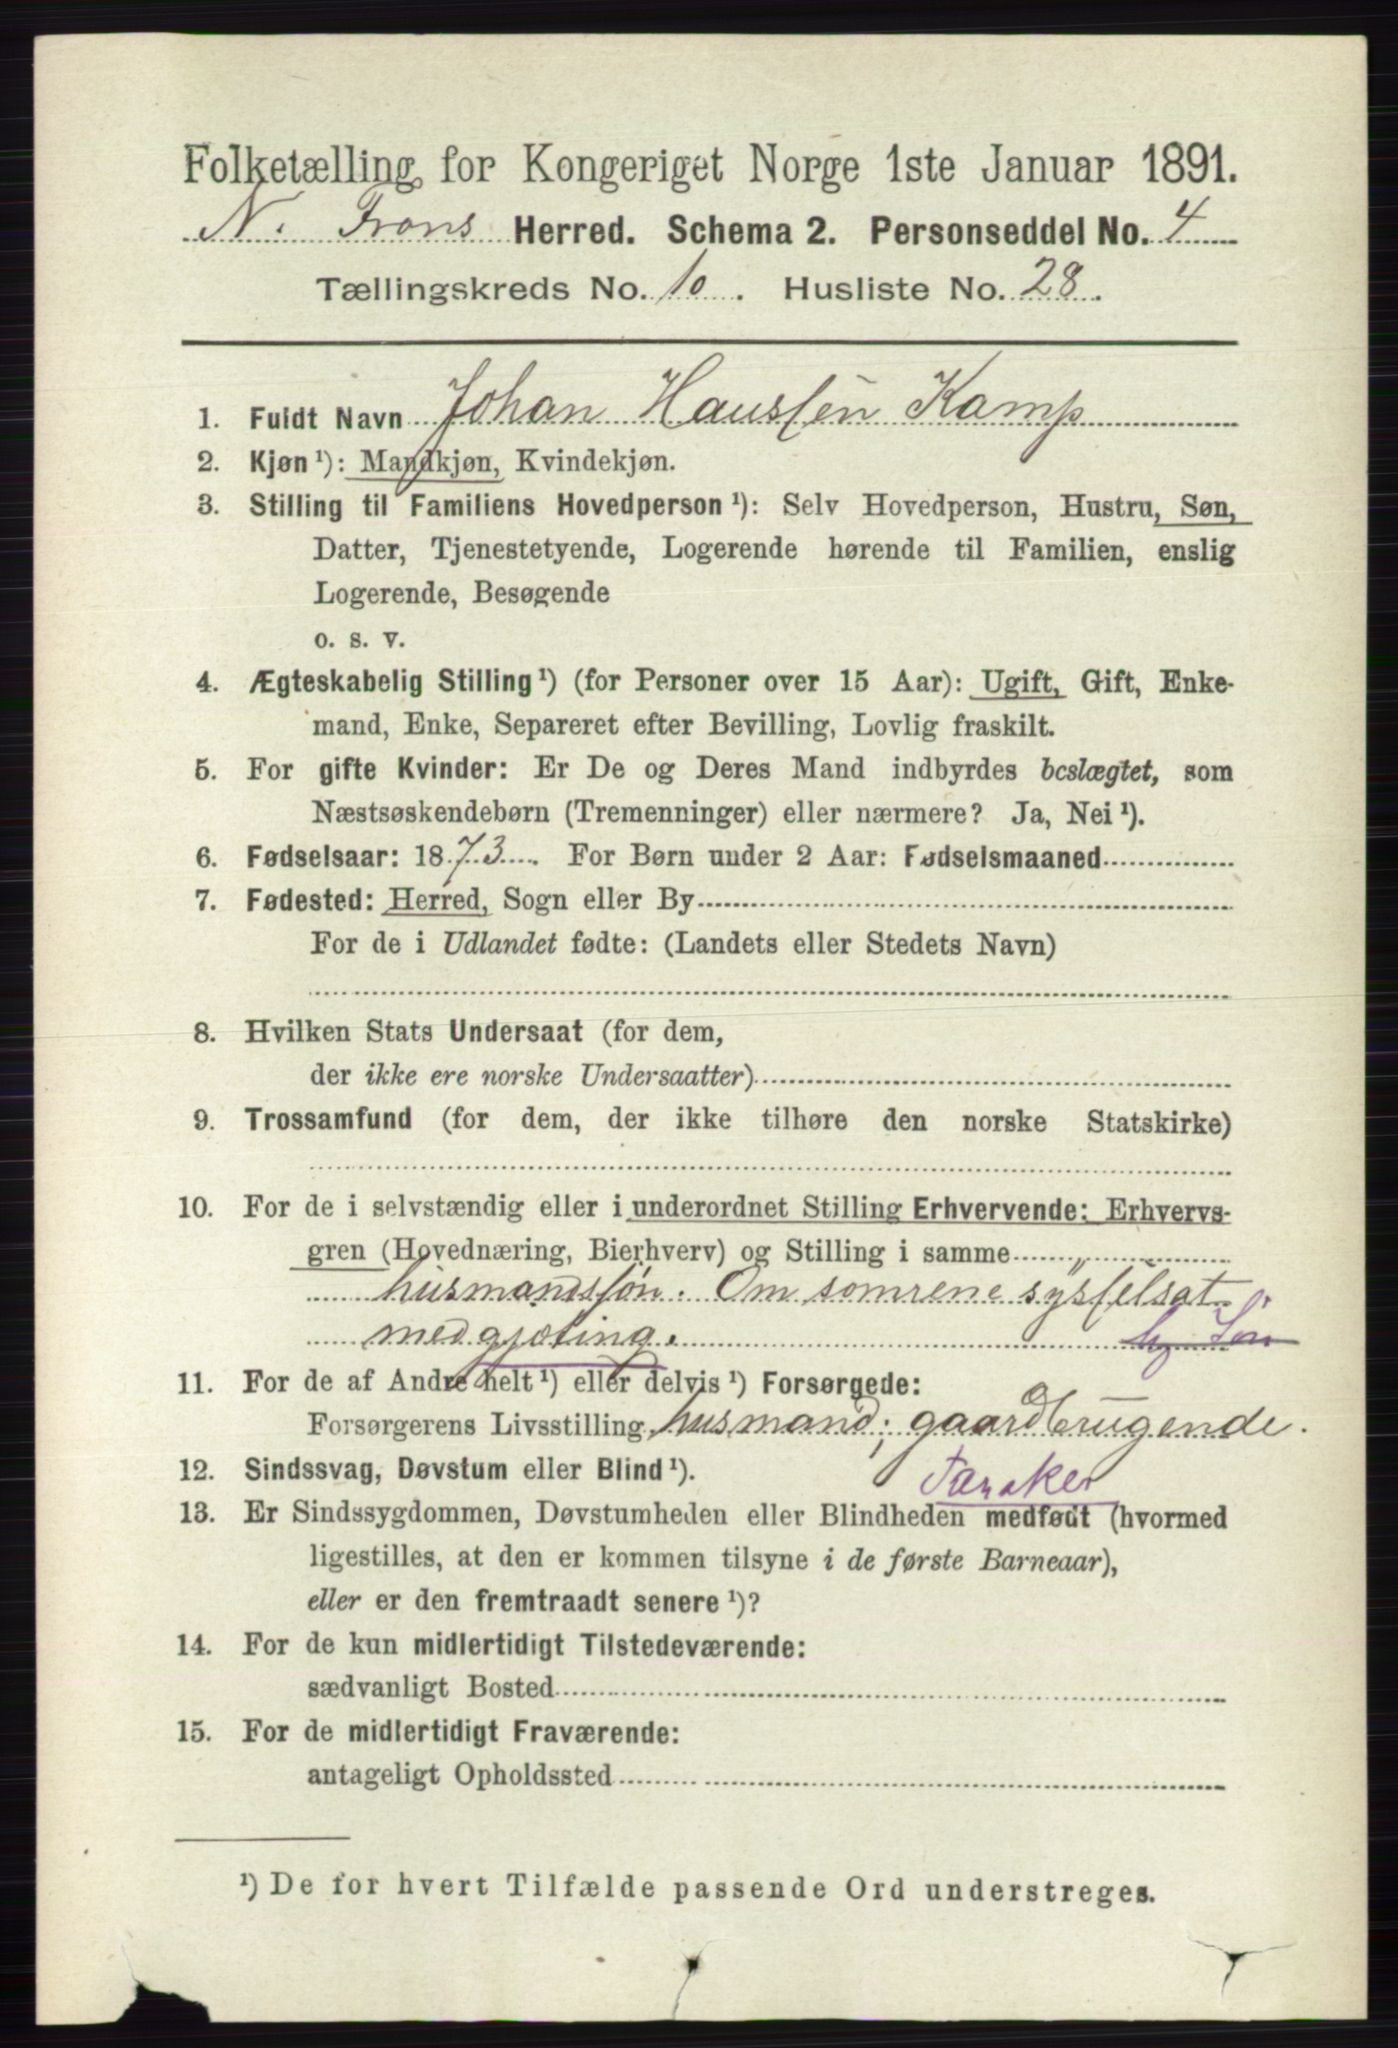 Folketælling for Kongeriget Norge 1ste Januar 1891.
N. Frons Herred. Schema 2. Personseddel No. 4
Tællingskreds No. 10. Husliste No. 28.
1. Fuldt Navn Johan Hanssen Kamp
2. Kjøn ¹): Mandkjøn, Kvindekjøn.
3. Stilling til Familiens Hovedperson ¹): Selv Hovedperson, Hustru, Søn,
Datter, Tjenestetyende, Logerende hørende til Familien, enslig
Logerende, Besøgende
o. s. v.
4. Ægteskabelig Stilling ¹) (for Personer over 15 Aar): Ugift, Gift, Enke-
mand, Enke, Separeret efter Bevilling, Lovlig fraskilt.
5. For gifte Kvinder: Er De og Deres Mand indbyrdes beslægtet, som
Næstsøskendebørn (Tremenninger) eller nærmere? Ja, Nei ¹).
6. Fødselsaar: 1873. For Børn under 2 Aar: Fødselsmaaned
7. Fødested: Herred, Sogn eller By
For de i Udlandet fødte: (Landets eller Stedets Navn)
8. Hvilken Stats Undersaat (for dem,
der ikke ere norske Undersaatter)
9. Trossamfund (for dem, der ikke tilhøre den norske Statskirke)
10. For de i selvstændig eller i underordnet Stilling Erhvervende: Erhvervs-
gren (Hovednæring, Bierhverv) og Stilling i samme „
husmandssøn. Om somrene sysselsat
med gjæting.
11. For de af Andre helt ¹) eller delvis ¹) Forsørgede:
Forsørgerens Livsstilling husmand; gaardbrugende.
12. Sindssvag, Døvstum eller Blind ¹).
13. Er Sindssygdommen, Døvstumheden eller Blindheden medfødt (hvormed
ligestilles, at den er kommen tilsyne i de første Barneaar),
eller er den fremtraadt senere ¹)?
14. For de kun midlertidigt Tilstedeværende:
sædvanligt Bosted
15. For de midlertidigt Fraværende:
antageligt Opholdssted
¹) De for hvert Tilfælde passende Ord understreges.